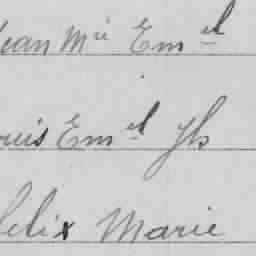 Jean Mie Emel
ouis Emel Jh
Felix Marie